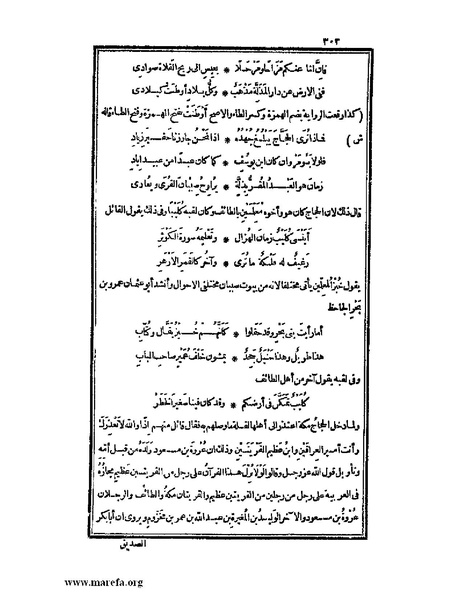 ٣٠٣
فإن لنا عنكم مزاحا ومزحلا * بعيس الى ريح الفلاة صوادى
فى الارض عن دار المذلة مذهب * وكل بلاد أوطنت كبلادى
(كذا وقعت الرواية بضم الهمزة وكسر الطاء والاصح أوطنت بفتح الهمزة وفتح الطاء قاله
ش) فماذا ترى الحجاج يبلغ جهده * اذا نحن جاوزنا حفير زياد
فلولا بنو مروان كان ابن يوسف * كما كان عبدا من عبيد اياد
زمان هو العبد المقر بذلة * يراوح صبيان القرى ويغادى
قال ذلك لان الحجاج كان هو وأخوه معلمين بالطائف وكان لقبه كليبا وفى ذلك يقول القائل
أينسى كليب زمان الهزال * وتعليمه سورة الكوثر
رغيف له فلكة ما ترى * وآخر كالقمر الازهر
يقول خبز المعلمين يأتى مختلفا لانه من بيوت صبيان مختلفى الاحوال وأنشد أبو عثمان عمرو بن
بحر الجاحظ
أما رأيت بنى بحر وقد حفلوا * كأنهم خبز بقال وكتاب
هذا طويل وهذا حنبل جحد * يمشون خلف عمير صاحب الباب
وفى لقبه يقول آخر من أهل الطائف
كليب تمكن فى أرضكم * وقد كان فينا صغير الخطر
ولما دخل الحجاج مكة اعتذر الى أهلها لقلة ما وصلهم به فقال قائل منهم اذا والله لا نعذرك
وأنت أمير العراقين وابن عظيم القريتين وذلك ان عروة بن مسعود ولده من قبل أمه
وتأويل قول الله عز وجل وقالوا لولا نزل هذا القرآن على رجل من القريتين عظيم مجازه
فى العربية على رجل من رجلين من القريتين عظيم والقريتان مكة والطائف والرجلان
عروة بن مسعود والآخر الوليد بن المغيرة بن عبد الله بن عمر بن مخزوم ويروى ان أبا بكر
الصديق
www.marefa.org